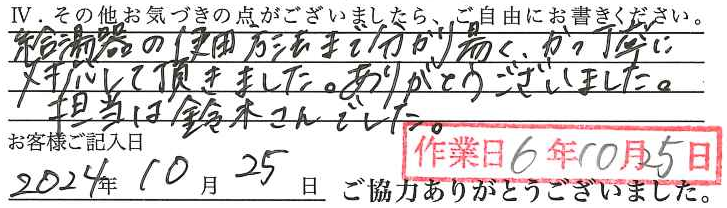 Ⅳ．その他お気づきの点がございましたら、ご自由にお書きください。
給湯器の使用方法まで分かり易く、かつ丁寧に
対応して頂きました。ありがとうございました。
担当は鈴木さんでした。
お客様ご記入日
作業日6年10月25日
2024年10月25日 ご協力ありがとうございました。